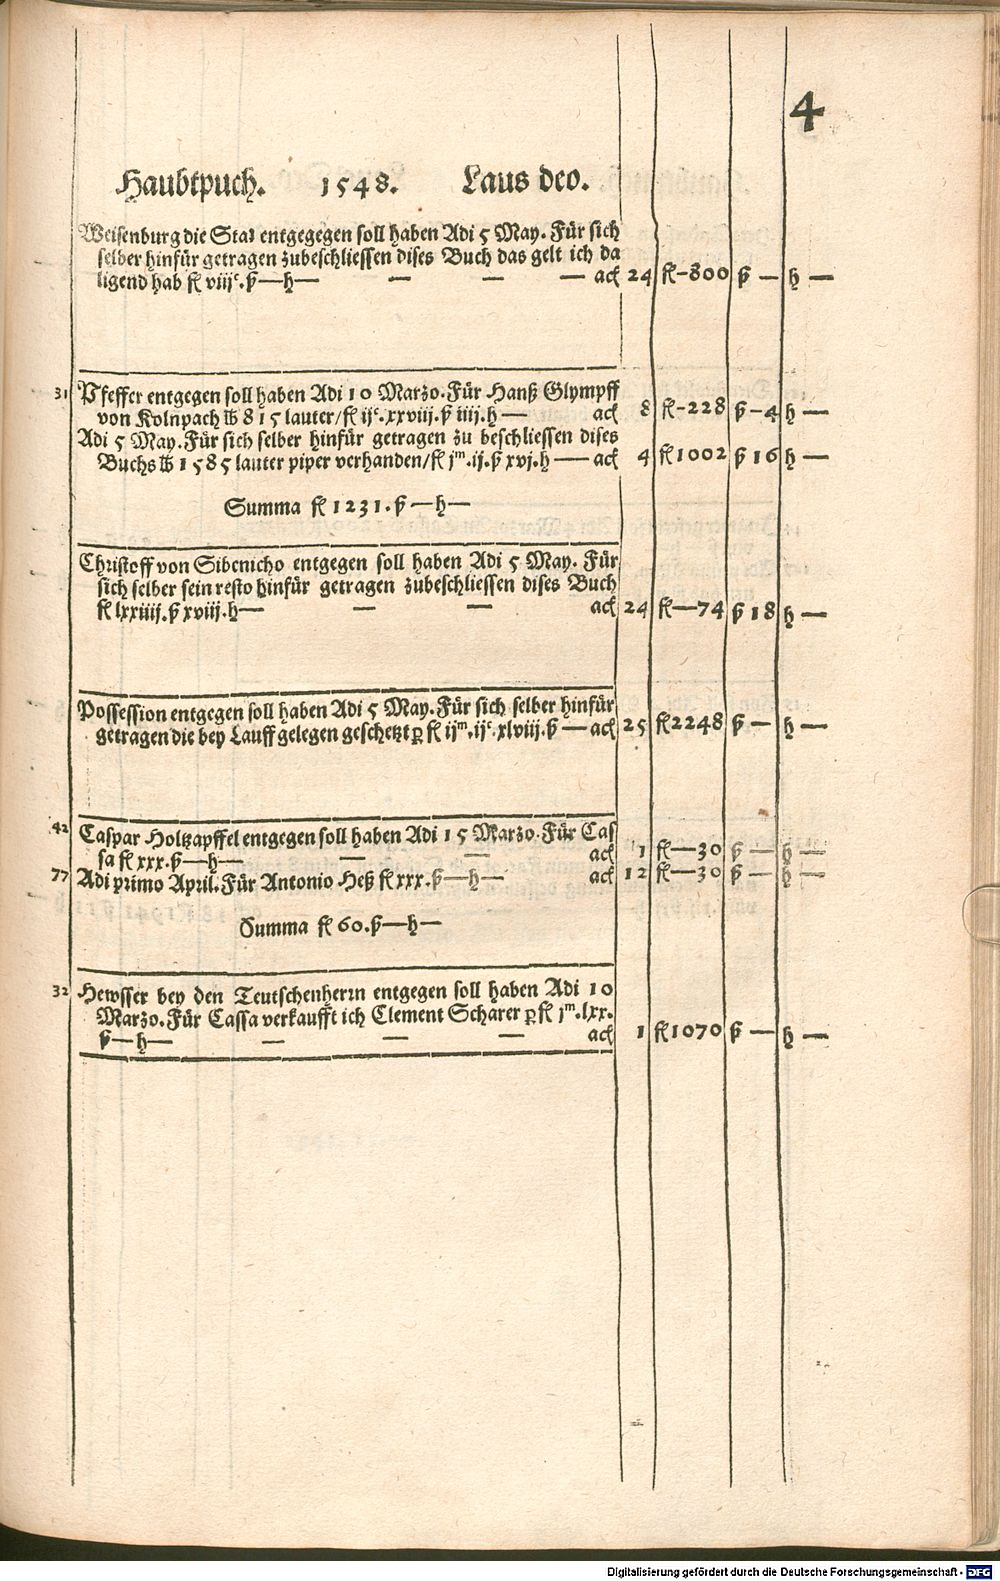 4
Haubtpuch. 1548. Laus deo.
Weisenburg die Stat entgegegen soll haben Adi 5 May. Für sich
selber hinfür getragen zubeschliessen dises Buch das gelt ich da
ligend hab fl viijc. ß — h — — — — acl 24 fl-800 ß — h —
31 Pfeffer entgegen soll haben Adi 10 Marzo. Für Hanß Glympff
von Kolnpach lb 815 lauter/fl ijc.xxviij.ß iiij.h — acl 8 fl-228 ß-4 h —
Adi 5 May. Für sich selber hinfür getragen zu beschliessen dises
Buchs lb 1585 lauter piper verhanden/fl jm.ij.ß xvj.h — acl 4 fl1002 ß 16 h —
Summa fl 1231.ß — h —
Christoff von Sibenicho entgegen soll haben Adi 5 May. Für
sich selber sein resto hinfür getragen zubeschliessen dises Buch
fl lxxiiij.ß xviij.h — — — acl 24 fl—74 ß 18 h —
Possession entgegen soll haben Adi 5 May. Für sich selber hinfür
getragen die bey Lauff gelegen geschetzt ꝑ fl ijm.ijc.xlviij.ß — acl 25 fl2248 ß — h —
42 Caspar Holtzapffel entgegen soll haben Adi 15 Marzo. Für Cas
sa fl xxx.ß — h — — — acl 1 fl—30 ß — h —
77 Adi primo April. Für Antonio Heß fl xxx.ß — h — acl 12 fl—30 ß — h —
Summa fl 60.ß — h —
32 Hewsser bey den Teutschenherrn entgegen soll haben Adi 10
Marzo. Für Cassa verkaufft ich Clement Scharer ꝑ fl jm.lxx.
ß — h — — — — acl 1 fl1070 ß — h —
Digitalisierung gefördert durch die Deutsche Forschungsgemeinschaft - DFG